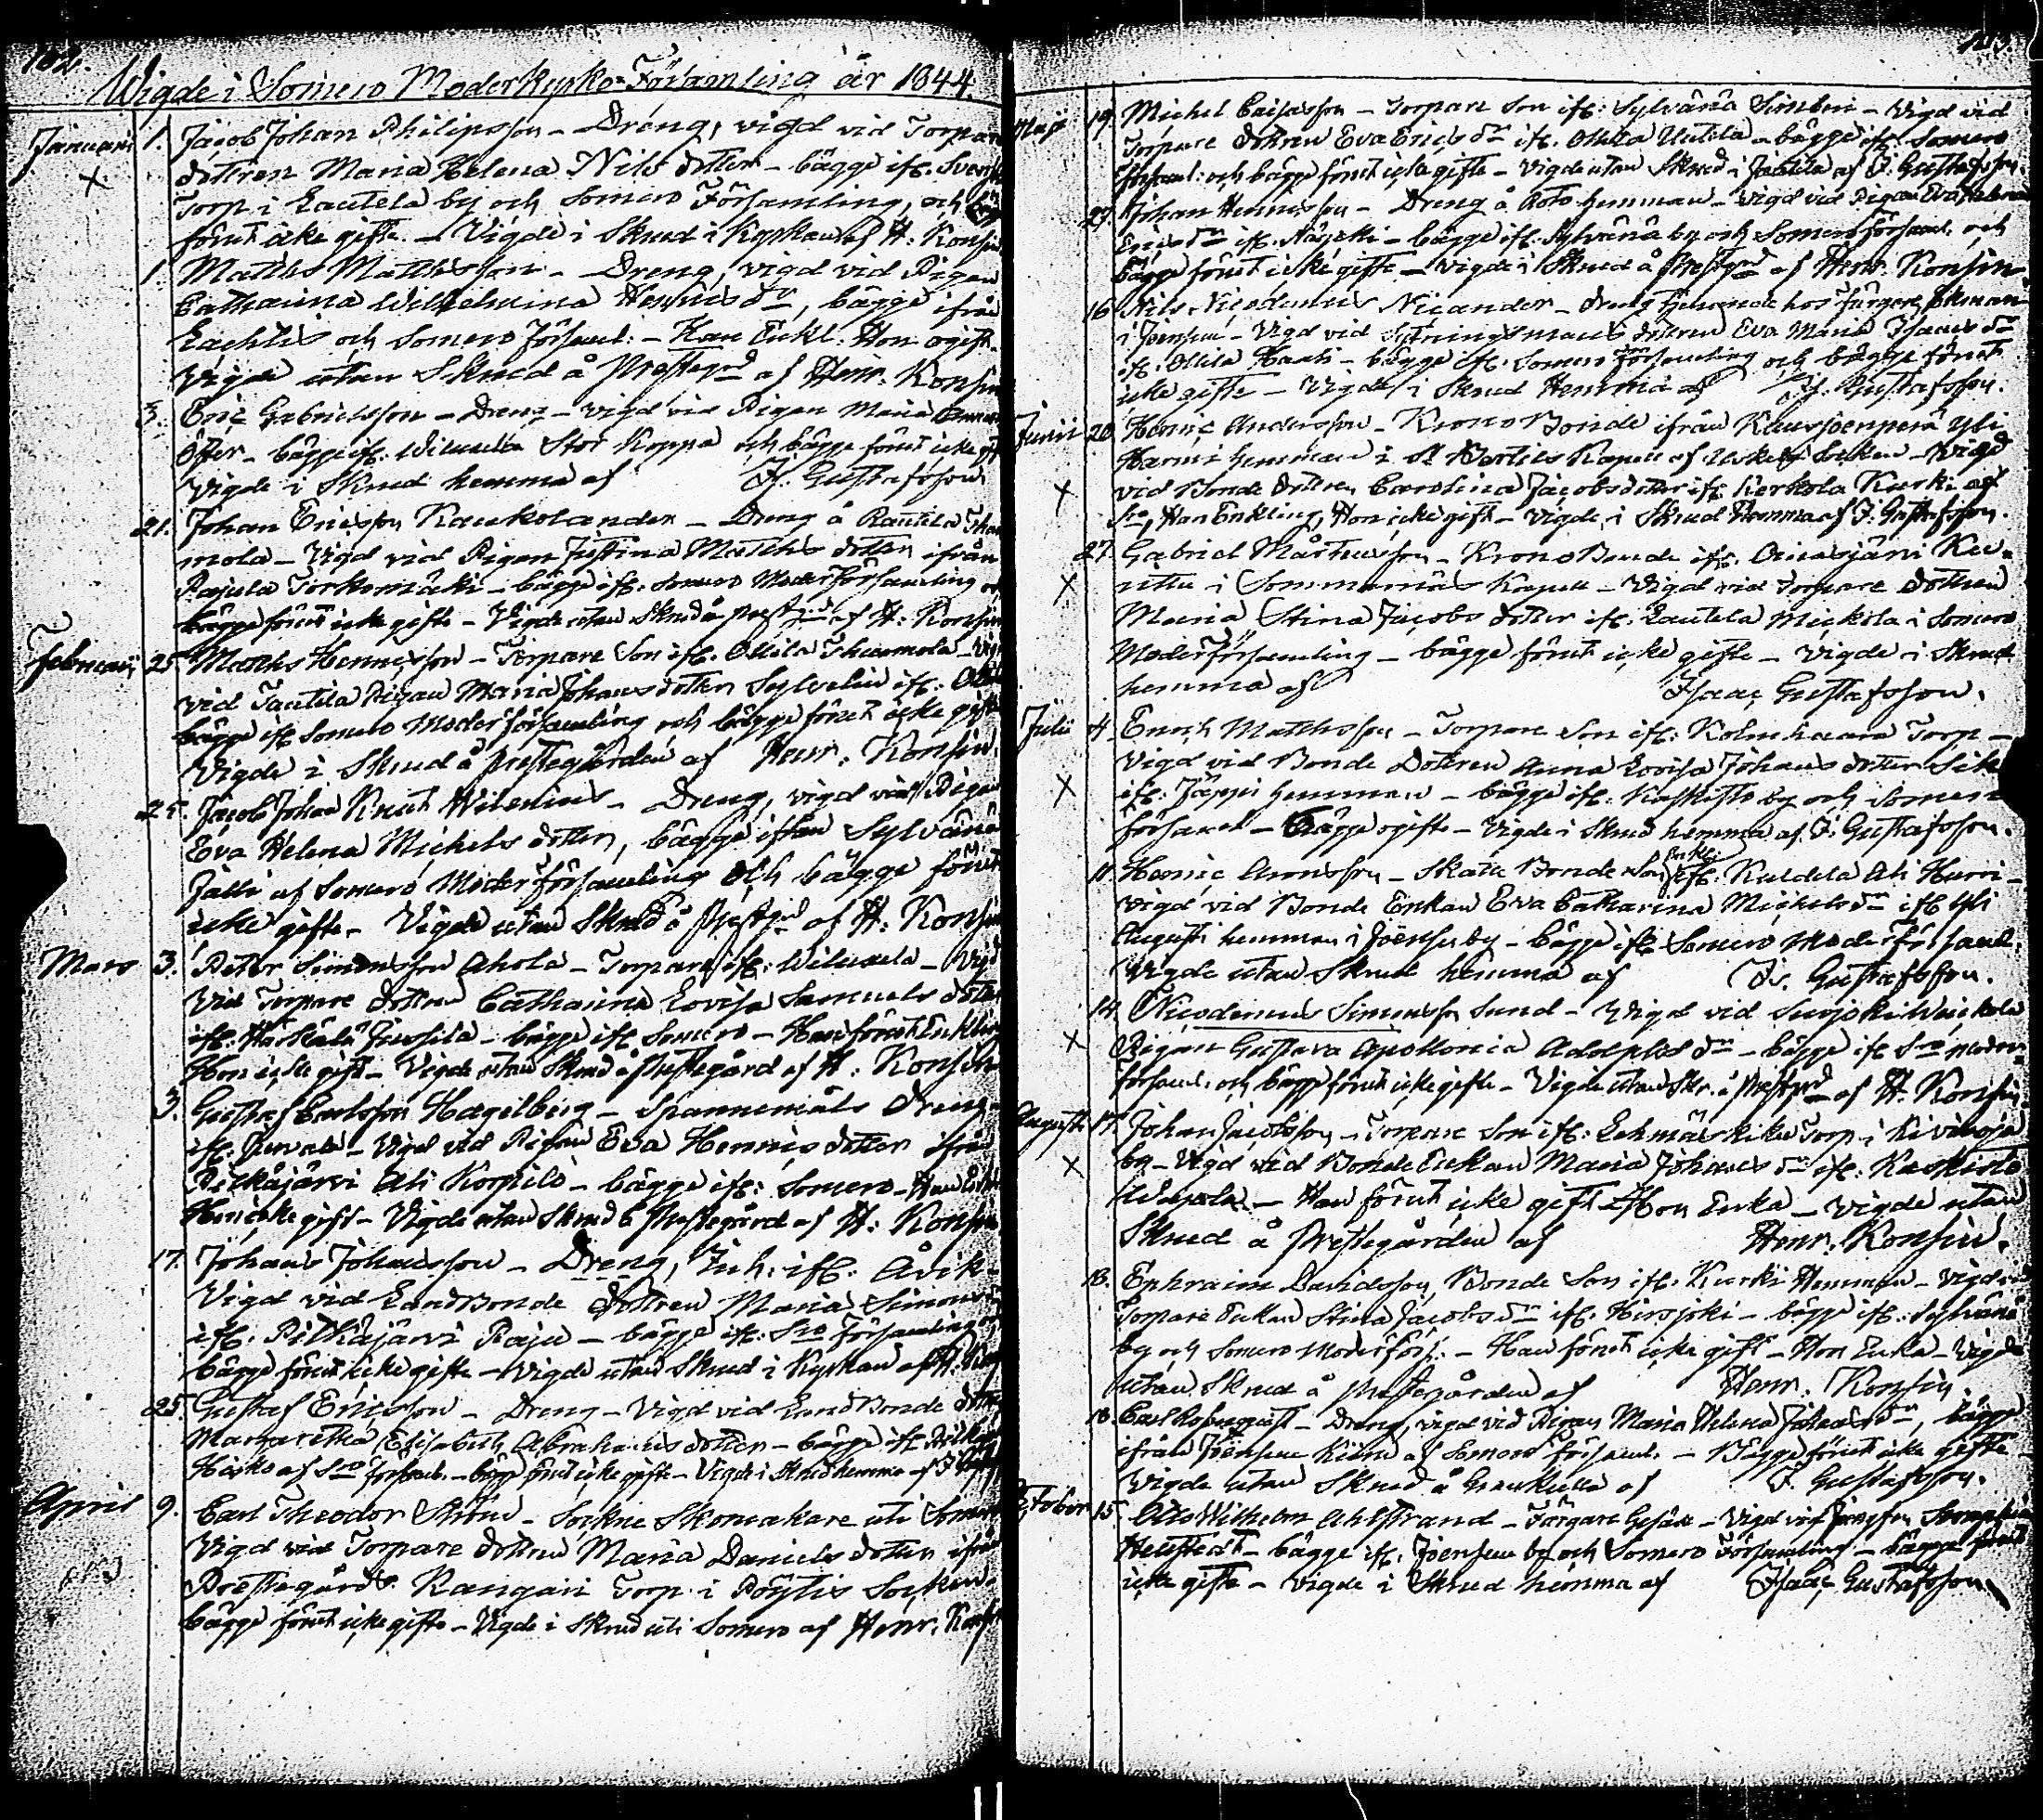 182.
Wigde i Somero Moderkyrko-Församling år 1844.
Januari 1. Jacob Johan Philipsson - Dreng, vigd vid Torpare
dottren Maria Helena Nils dotter - bägge ifr.
Torp i Lautela by och Somero Församling, och
förut icke gifte. - Vigde i Skrud i Kyrkan af H. Konsin
1. Matths Matthsson - Dreng, vigd vid Pigan
Catharina Wilhelmina Henricsdr, bägge ifrån
Lachtis och Somero Församl: - Han Enkl. Hon ogift.
Vigde utan Skrud å Prestegrd af Henr. Konsin
3. Eric Gabrielsson - Dreng - vigd vid Pigan Maria
Öster - bägge ifr. Wiluxela Stor Koppa och bägge förut icke gift
Vigde i Skrud hemma af I. Gustafsson
21. Johan Ericsson Kaukolander - Dreng å Rautela
mola - Vigd vid Pigan Justina Matths dotter ifrån
Pajula Torkomäki - bägge ifr. Somero Moderförsamling och
bägge förut icke gifte - Vigde utan Skrud å Prestgrd af H. Konsin
Februari 25. Matths Henricsson - Torpare Son ifr. Ollila Ihamola - Vigd
vid Pigan Maria Johans dotter Sylvelin ifr.
bägge ifr Somero Moderförsamling och bägge förut icke gifte
Vigde i Skrud å Prestegården af Henr. Konsin.
25. Jacob Johan Knut Wilenius - Dreng, vigd vid Pigan
Eva Helena Michels dotter, bägge ifrån Sylvänä
Jalli af Somero Moderförsamling och bägge förut
icke gifte. Vigde utan Skrud å Prestgrd af H. Konsin
Mars 3. Petter Simonsson Ahola - Torpare ifr. Wiluxela - Vigd
vid Torpare dottren Catharina Lovisa Samuels dotter
ifr. Härkälä Jussila - bägge ifr Somero - Han förut Enkling
Hon icke gift - Vigde utan Skrud å Prestegård af H. Konsin
3. Gustaf Carlsson Hagelberg - Spannemåls Dreng -
ifr. - Vigd vid Pigan Eva Henrics dotter ifrån
Pitkäjärvi Ali Korpilo - bägge ifr: Somero - Han
Hon icke gift - Vigde utan Skrud å Prestegård af H. Konsin
17. Johan Johansson - Dreng, Inh. ifr. Åvik -
Vigd vid Landbonde dottren Maria Simonsdr
ifr. Pitkäjärvi Raju - bägge ifr: Sro Församling och
bägge förut icke gifte - Vigde utan Skrud i Kyrkan af H.
25. Gustaf Ericsson - Dreng - Vigd vid Landbonde
Margaretha Elisabeth Abrahamsdotter - bägge ifr
Hirsko af Sro församl. - bägge förut icke gifte - Vigde i Skrud hemma af I.
April 9. Carl Theodor Ström - Sockne Skomakare uti Somero
Vigd vid Torpare dottren Maria Daniels dotter ifrån
Prestegårds Rangain Torp i Pöytis Socken.
bägge förut icke gifte - Vigde i Skrud uti Somero af Henr. Konsin
Maji 19. Michel - Torpare Son ifr: Sylvänä Simbri - Vigd vid
Torpare dottren Eva Ericsdr ifr. Ollila Uutela - bägge ifr. Somero
församl: och bägge förut icke gifte - Vigde utan Skrud i Jautila af I. Gustafsson.
27. Johan Henricsson - Dreng å hemman - Vigd vid Pigan Eva
Ericsdr ifr. - bägge ifr. Sylvänä by och Somero församl. och
bägge förut icke gifte - Vigde i Skrud å Prestgrd af Henr. Konsin
16 Nils Nicodemus Nicander - Dreng tjenande hos färgare Ekman
i Joensuu - Vigd vid Sytningsmans dottren Eva Maria Isaacsdr
ifr. Ollila Haati - bägge ifr. Somero Församling och bägge förut
icke gifte - Vigde i Skrud Hemma af I. Gustafsson.
Junii 20 Henric Andersson - Krono Bonde ifrån Yli
Harmi hemman i St Bertils Kapell af Uskela Socken - Vigd
vid Bonde dottren Carolina Jacobsdotter ifr Kerkola Kurki af
Sro, Han Enkling, Hon icke gift - Vigde i Skrud Hemma af I. Gustafsson.
27. Gabriel Mårtensson - Krono Bonde ifr. Oinasjärvi
i Sommarnäs Kapell - Vigd vid Torpare dottren
Maria Stina Jacobs dotter ifr. Lautela Mickola i Somero
Moderförsamling - bägge förut icke gifte - Vigde i Skrud
hemma af Isaac Gustafsson.
Julii 4. Enoch Matthsson - Torpare Son ifr: Kolmhaara Torp -
Vigd vid Bonde Dottren Anna Lovisa Johans dotter
ifr. Jäppi hemman - bägge ifr. Kaskisto by och Somero
församl - bägge ogifte - Vigde i Skrud hemma af I. Gustafsson.
11. Henric Aronsson - Skatte Bonde Son Enkl. ifr. Kuldela Ali Hurri -
vigd vid Bonde Enkan Eva Catharina Michelsdr ifr Yli
Augusti hemman i Joensuu by - bägge ifr Somero Moderförsaml.
Vigde utan Skrud hemma af Is. Gustafsson.
14. Nicodemus Simonsson Sund - Vigd vid
Pigan Gustava Apollonia Adolphsdr - bägge ifr Sro moder
församl. och bägge förut icke gifte - Vigde utan Skr. å Prestgrd af H. Konsin.
Augusti 17. Johan Jacobsson - Torpare Son ifr: Torp i Kivisoja
by - Vigd vid Bonde Enkan Maria Johansdr ifr. Kaskisto
- Han förut icke gift Hon Enka - Vigde utan
Skrud å Prestegården af Henr. Konsin.
18. Ephraim Davidsson, Bonde Son ifr. Kurki Hemman - Vigd vid
Torpare Enkan Stina Jacobsdr ifr. Hirsjoki - bägge ifr. Sylvänä
by och Somero Moderförs: - Han förut icke gift - Hon Enka - Vigde
utan Skrud å Prestegården af Henr. Konsin.
18. Carl - Dreng, vigd vid Pigan Maria Helena Johansdr, bägge
ifrån Joensuu af Somero församl. - Bägge förut icke gifte -
Vigde utan Skrud å af I. Gustafsson.
October 15. Otto Wilhelm Ahlstrand - Färgare Gesäll - Vigd vid Jungfru
- bägge ifr. Joensuu by och Somero Församling - bägge förut
icke gifte - Vigde i Skrud hemma af Isaac Gustafsson.